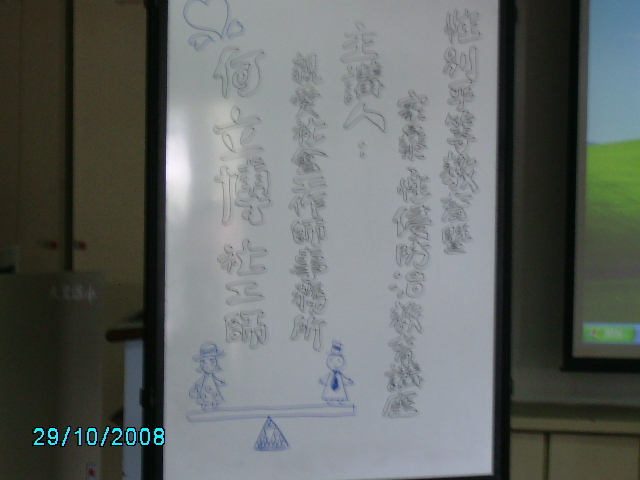 性別平等教育暨
性侵防治教育講座
主講人：
社會工作師事務所
何立博 社工師
29/10/2008